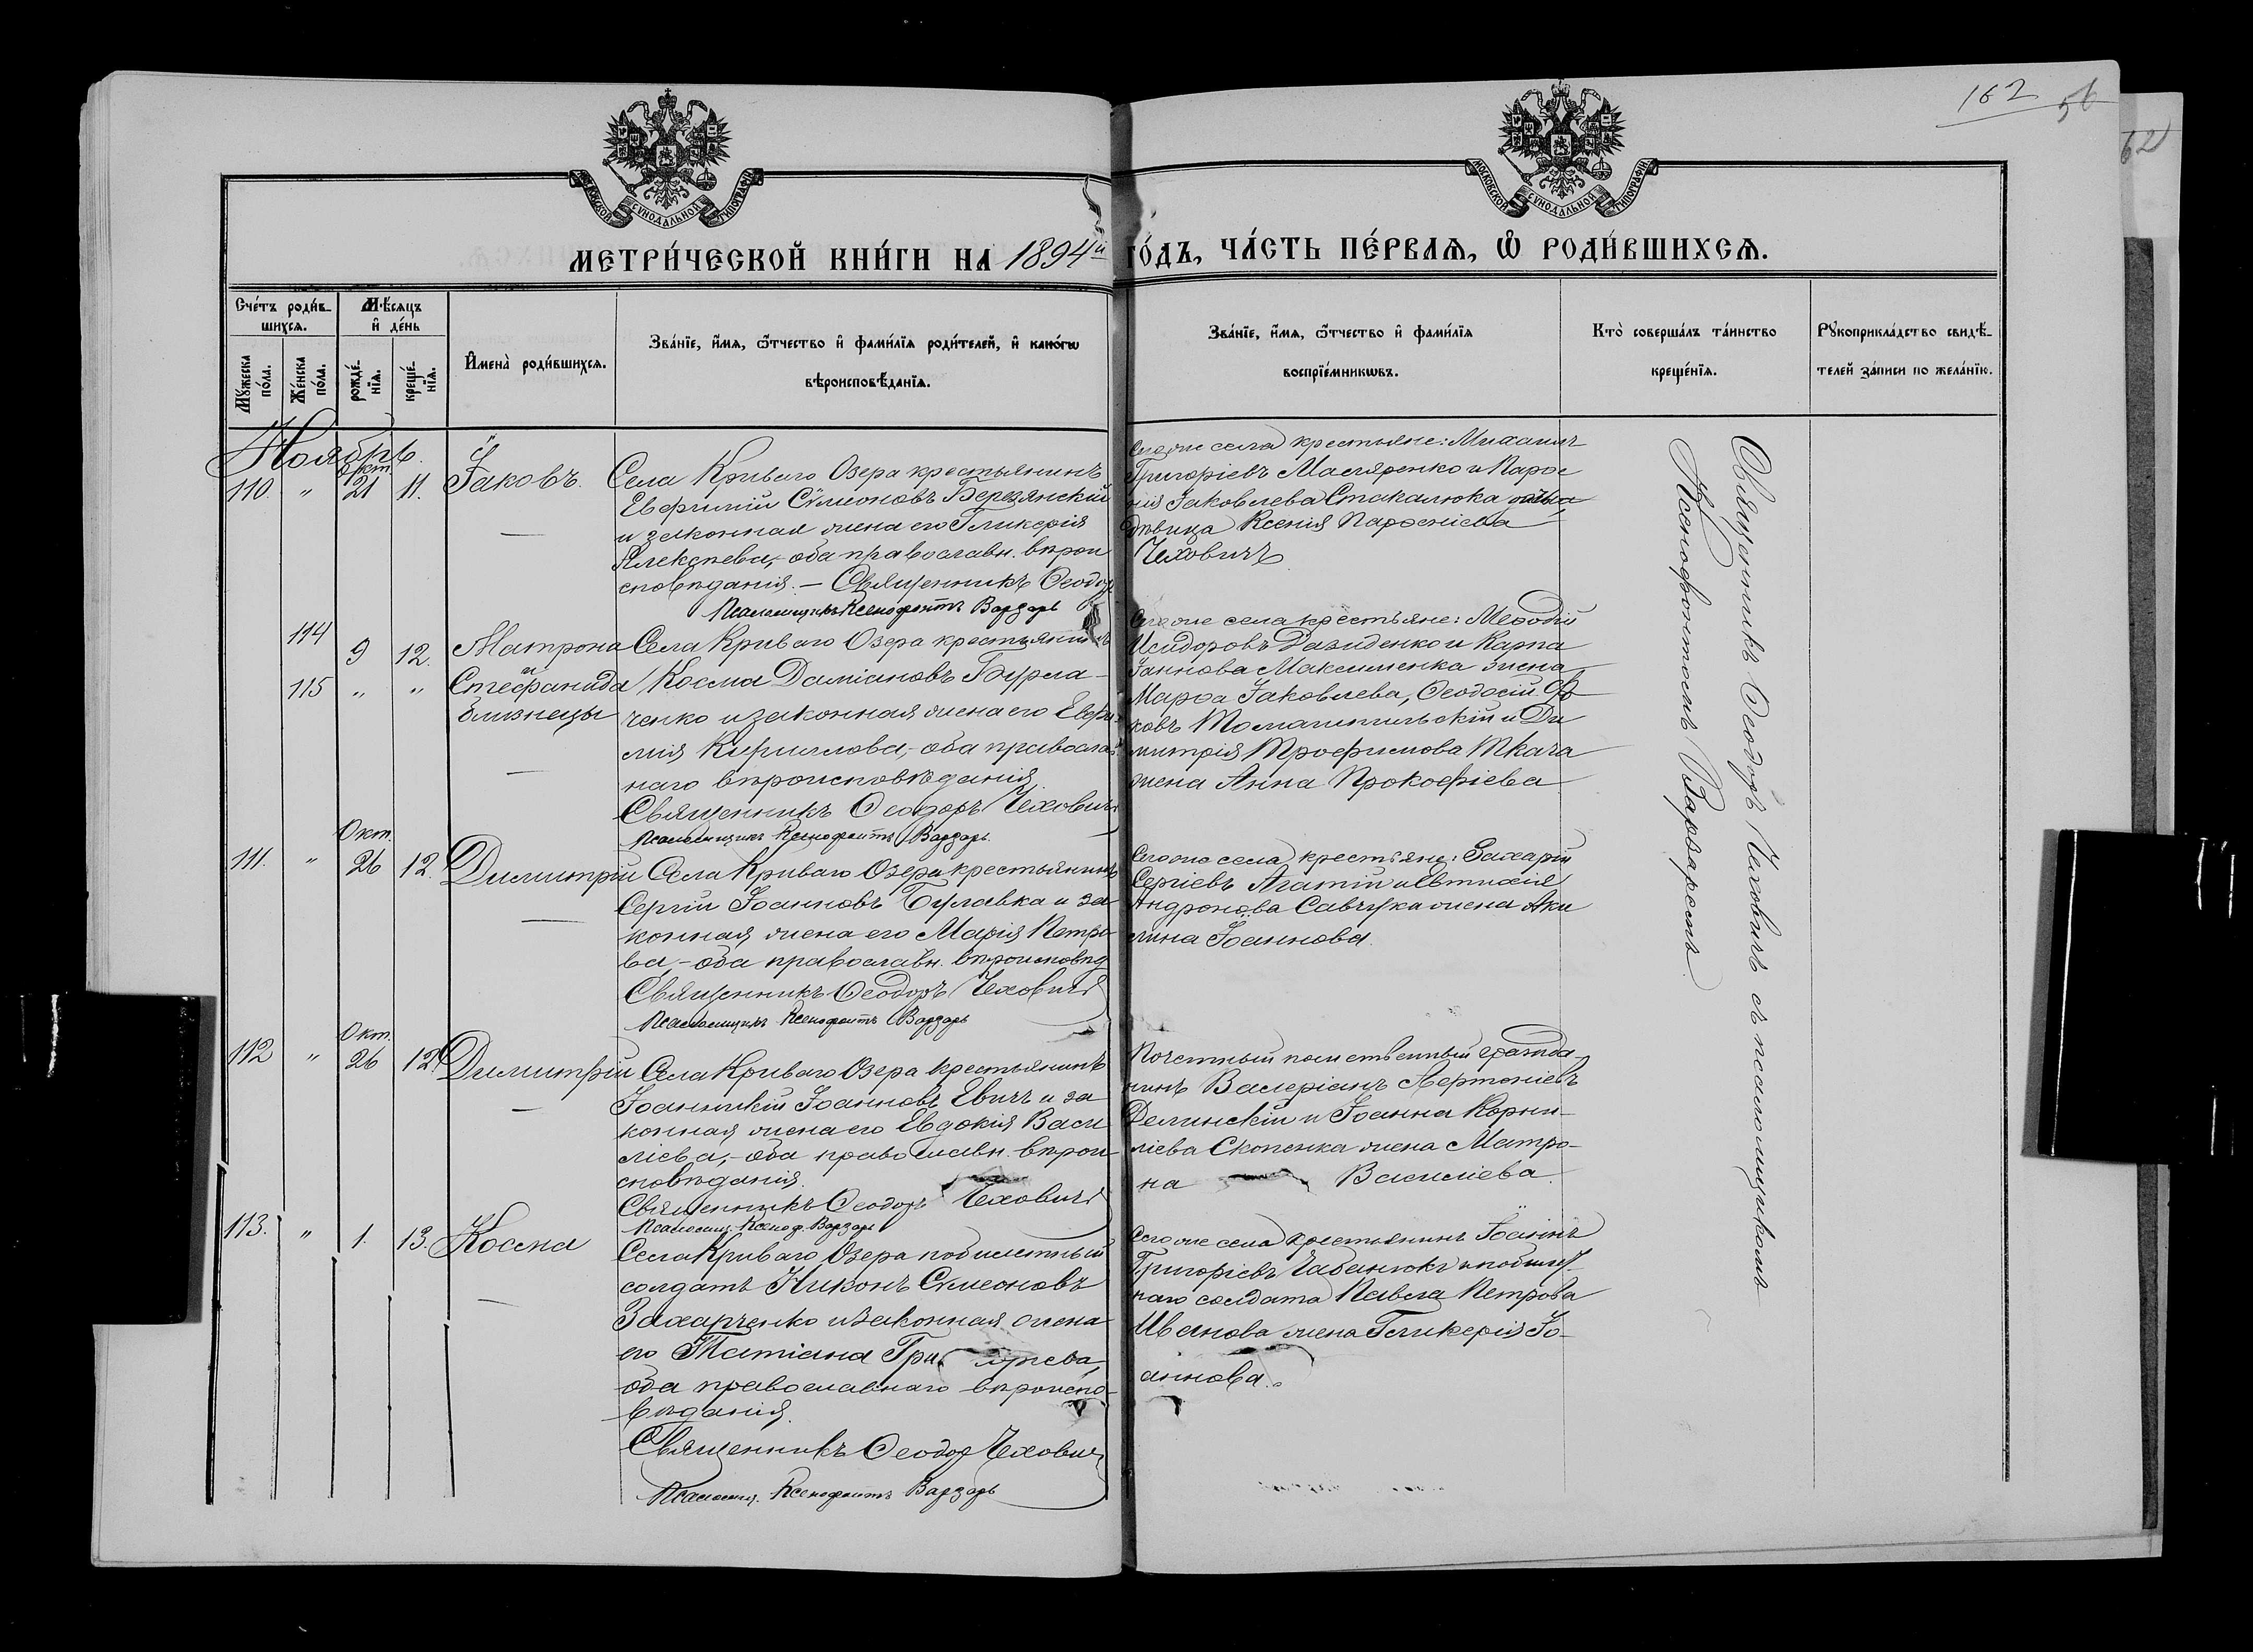 162 56
62
МОСКОВСКОЙ СѴНОДАЛЬНОЙ ТИПОГРАФІИ
МОСКОВСКОЙ СѴНОДАЛЬНОЙ ТИПОГРАФІИ
МЕТРИ́ЧЕСКОЙ КНИ́ГИ НА 1894й ГО́ДЪ, ЧА́СТЬ ПЕ́РВАѦ, Ѽ РОДИ́ВШИХСѦ.
Сче́тъ роди́вшихсѧ.
Мꙋ́жеска по́ла.
Же́нска по́ла.
Мѣ́сѧцъ и҆ де́нь
рожде́нїѧ.
креще́нїѧ.
И҆мена̀ роди́вшихсѧ.
Зва́нїе, и҆́мѧ, ѻ҆́тчество и҆ фами́лїѧ роди́телей, и҆ како́гѡ
вѣроисповѣ́данїѧ.
Зва́нїе, и҆́мѧ, ѻ҆́тчество и҆ фами́лїѧ
воспрїе́мникѡвъ.
Кто̀ соверша́лъ та́инство
креще́нїѧ.
Рꙋкоприкла́дство свидѣ́-
телей за́писи по жела́нїю.
Ноябрь.
110. " Окт. 21 11. Іаковъ.
Села Криваго Озера крестьянинъ
Евфимій Сѵмеоновъ Березянскій
и законная жена его Гликерія
Алексѣева, оба православн. вѣрои
сповѣданія. — Священникъ Ѳеодор
Псаломщикъ Ксенофонтъ Варзарь
Сего же села крестьяне: Михаилъ
Григоріевъ Масляренко и Парѳе
нія Іаковлева Стакалюка дочь
дѣвица Ксенія Парѳеніева
Чеховичъ
114 9 12. Матрона
115 " " и Стефанида
близнецы
Села Криваго Озера крестьянинъ
Косма Даміановъ Бурла-
ченко и законная жена его Евфи
мія Кириллова, оба православ
наго вѣроисповѣданія
Священникъ Ѳеодоръ Чеховичъ
Псаломщикъ Ксенофонтъ Варзарь
Сего же села крестьяне: Меѳодій
Исидоровъ Давиденко и Карпа
Іаннова Максименка жена
Марѳа Іаковлева, Ѳеодосій
митрія Трофимова Ткача
жена Анна Прокофіева
111. " Окт. 26 12. Димитрій
Села Криваго Озера крестьянинъ
Сергій Іоанновъ Булавка и за
конная жена его Марія Петро
ва, — оба православн. вѣроисповѣд
Священникъ Ѳеодоръ Чеховичъ
Псаломщикъ Ксенофонтъ Варзарь
Сего же села крестьяне: Захарій
Сергіевъ Агатій и Евтихія
Андронова Савчука жена Аки
лина Іоаннова.
112 " Окт. 26 12. Димитрій
Села Криваго Озера крестьянинъ
Іоанникій Іоанновъ Евичъ и за
конная жена его Евдокія Васи
ліева, — оба православн. вѣрои
сповѣданія.
Священникъ Ѳеодоръ Чеховичъ
Псаломщ. Ксеноф. Варзарь
Почетный гражда-
нинъ Валеріанъ
Делинскій и Іоанна Корни-
ліева Скопенка жена Матро-
на Василіева.
113. " 1. 13. Косма
Села Криваго Озера побилетный
солдатъ Никонъ Сѵмеоновъ
Захарченко и законная жена
его Татіана Григоріева,
оба православнаго вѣроиспо-
вѣданія.
Священникъ Ѳеодор Чехович
Псаломщ. Ксенофонтъ Варзарь
Сего же села крестьянинъ Іоаннъ
Григоріевъ Чабанюкъ и побилет-
наго солдата Павла Петрова
Иванова жена Гликерія Іо-
аннова.
Священникъ Ѳеодоръ Чеховичъ съ псаломщикомъ
Ксенофонтомъ Варзаремъ.